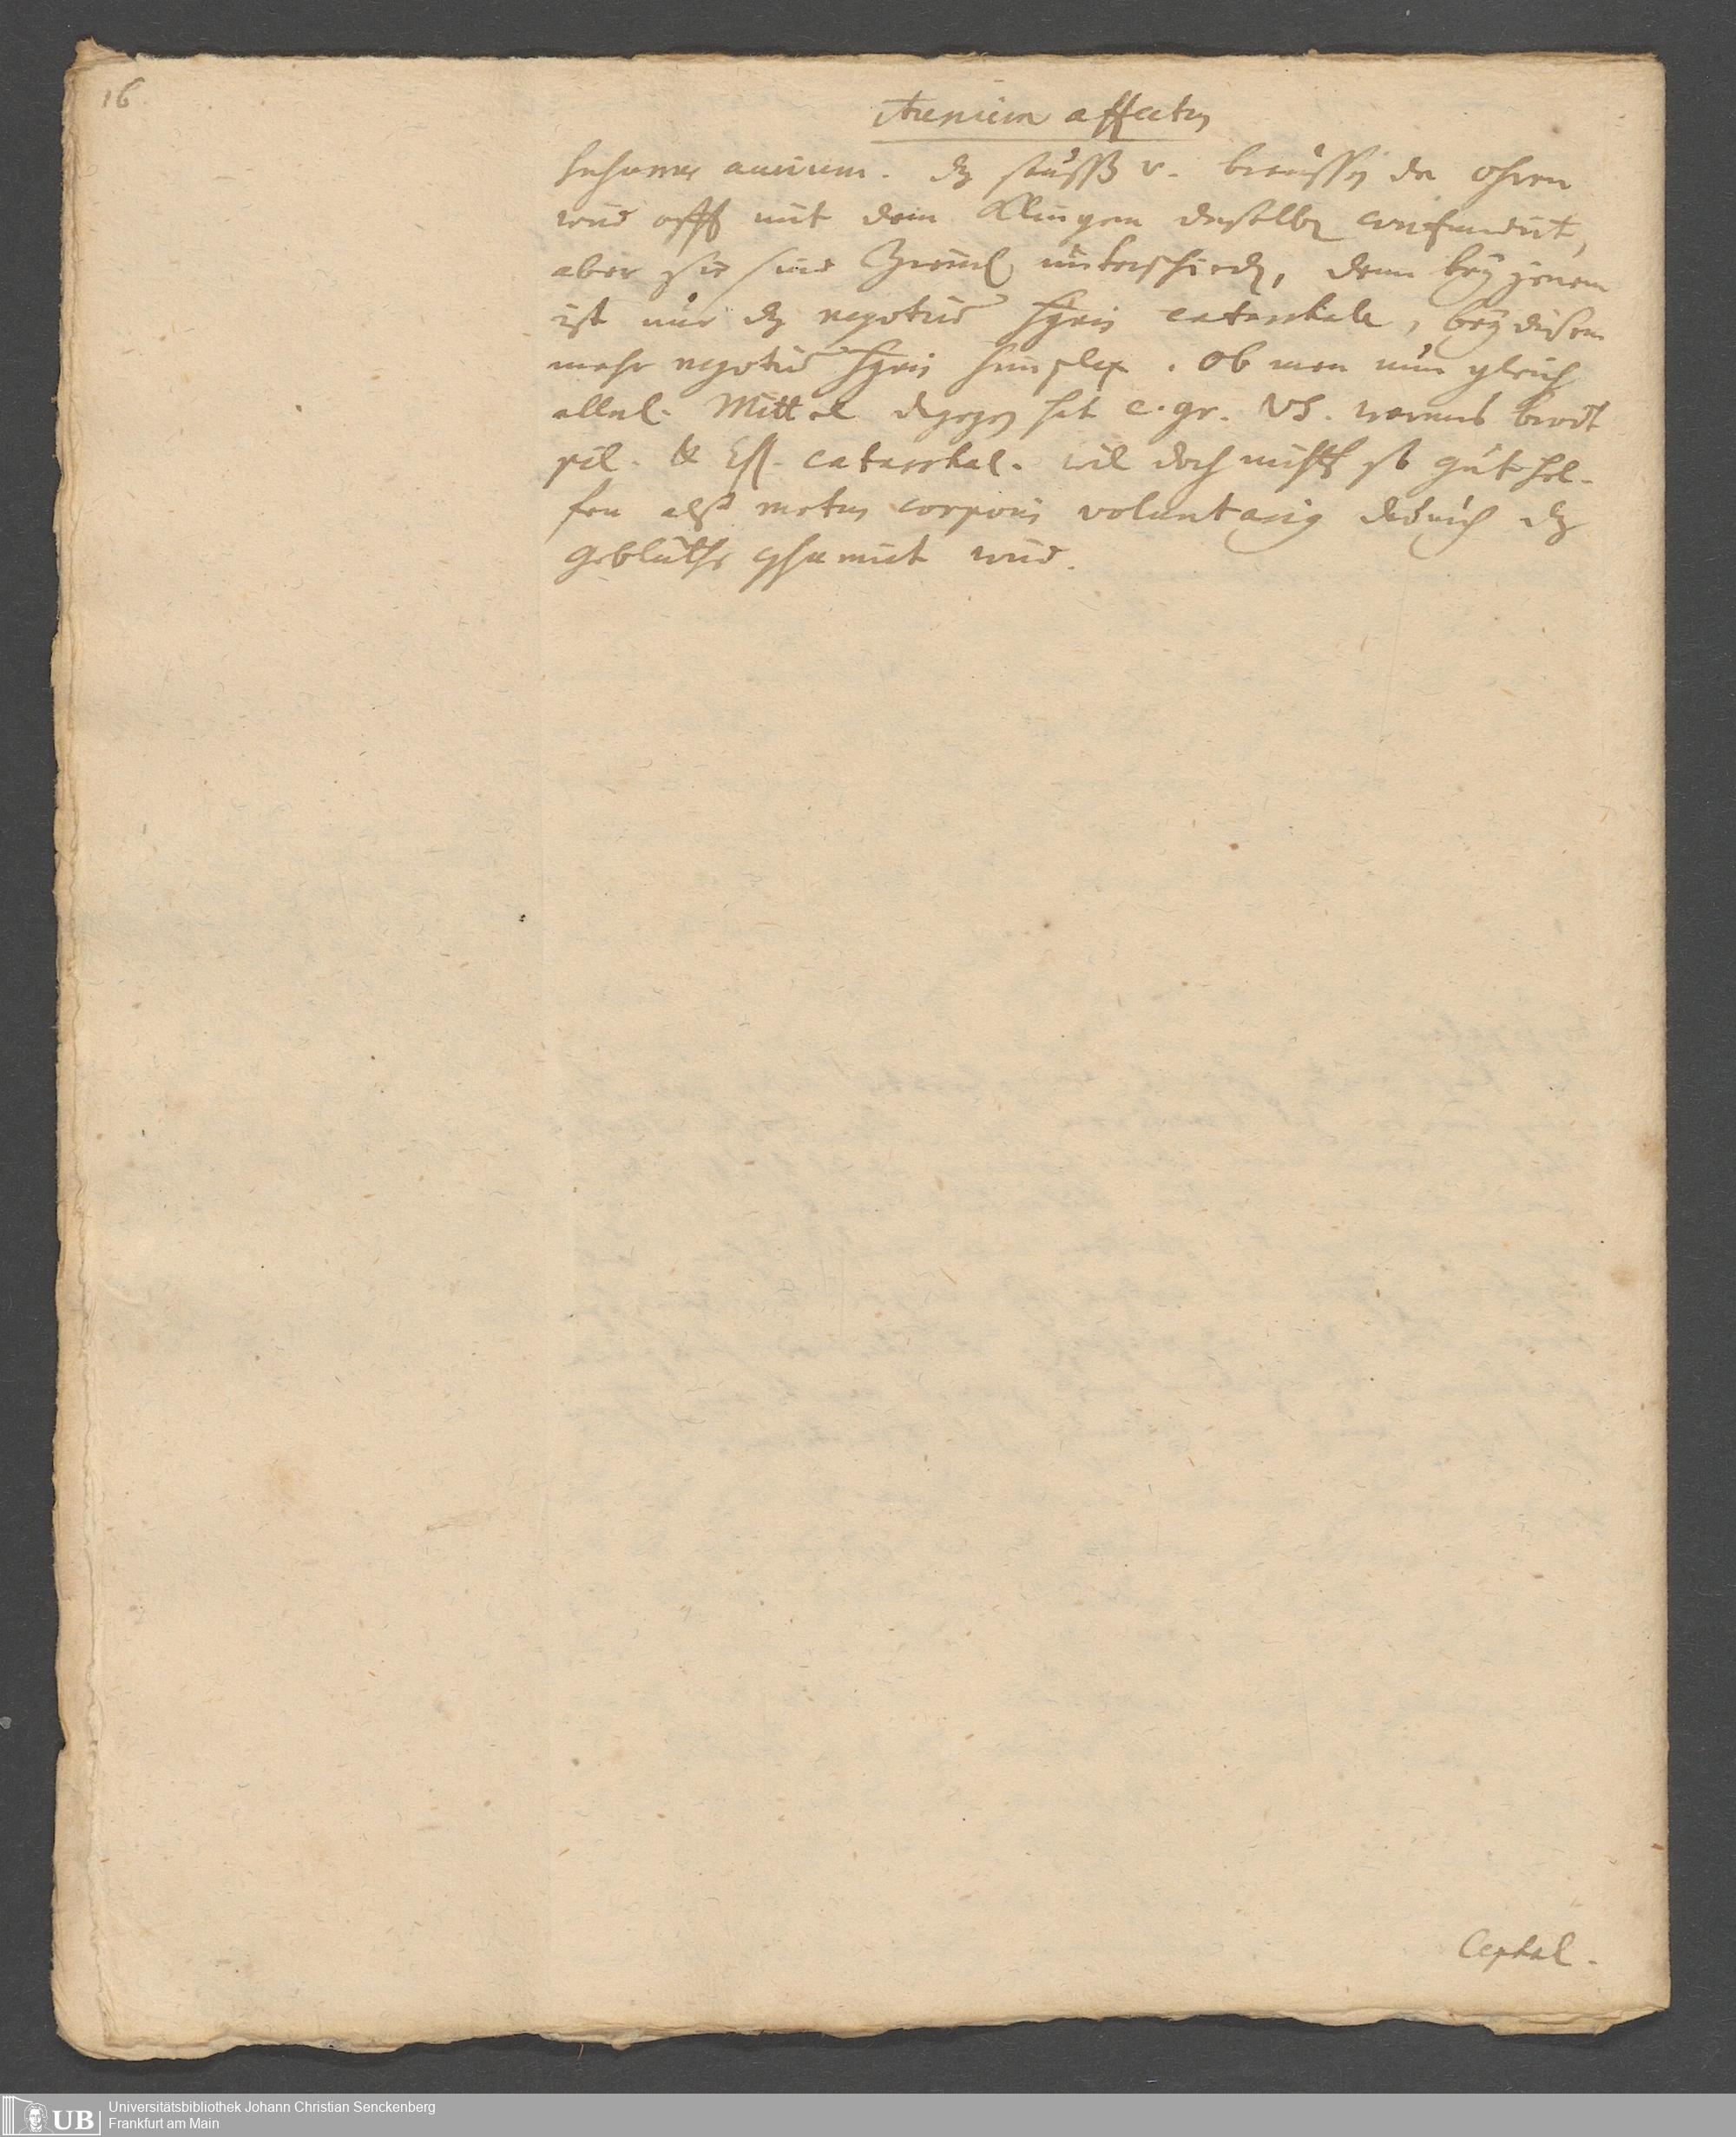 16.
Aurium affectus
Susurrus aurium. dz saußß u. braußen der ohren
wird offt mit dem Klingen deßelben confundirt,
aber sie sind Zieml. unterschieden, denn bey jenem
ist nur dz negotium catarrhale, bey diesem
mehr negotium simplex. Ob man nun gleich
allerl. Mittel dagegen hat e. gr. VS. warmb brodt
pil. & Ess. catarrhal. wil doch nichts so gut hel-
fen alß motus corporis voluntarius dadurch dz
geblüthe wird.
Cephal.
Universitätsbibliothek Johann Christian Senckenberg
Frankfurt am Main
UB